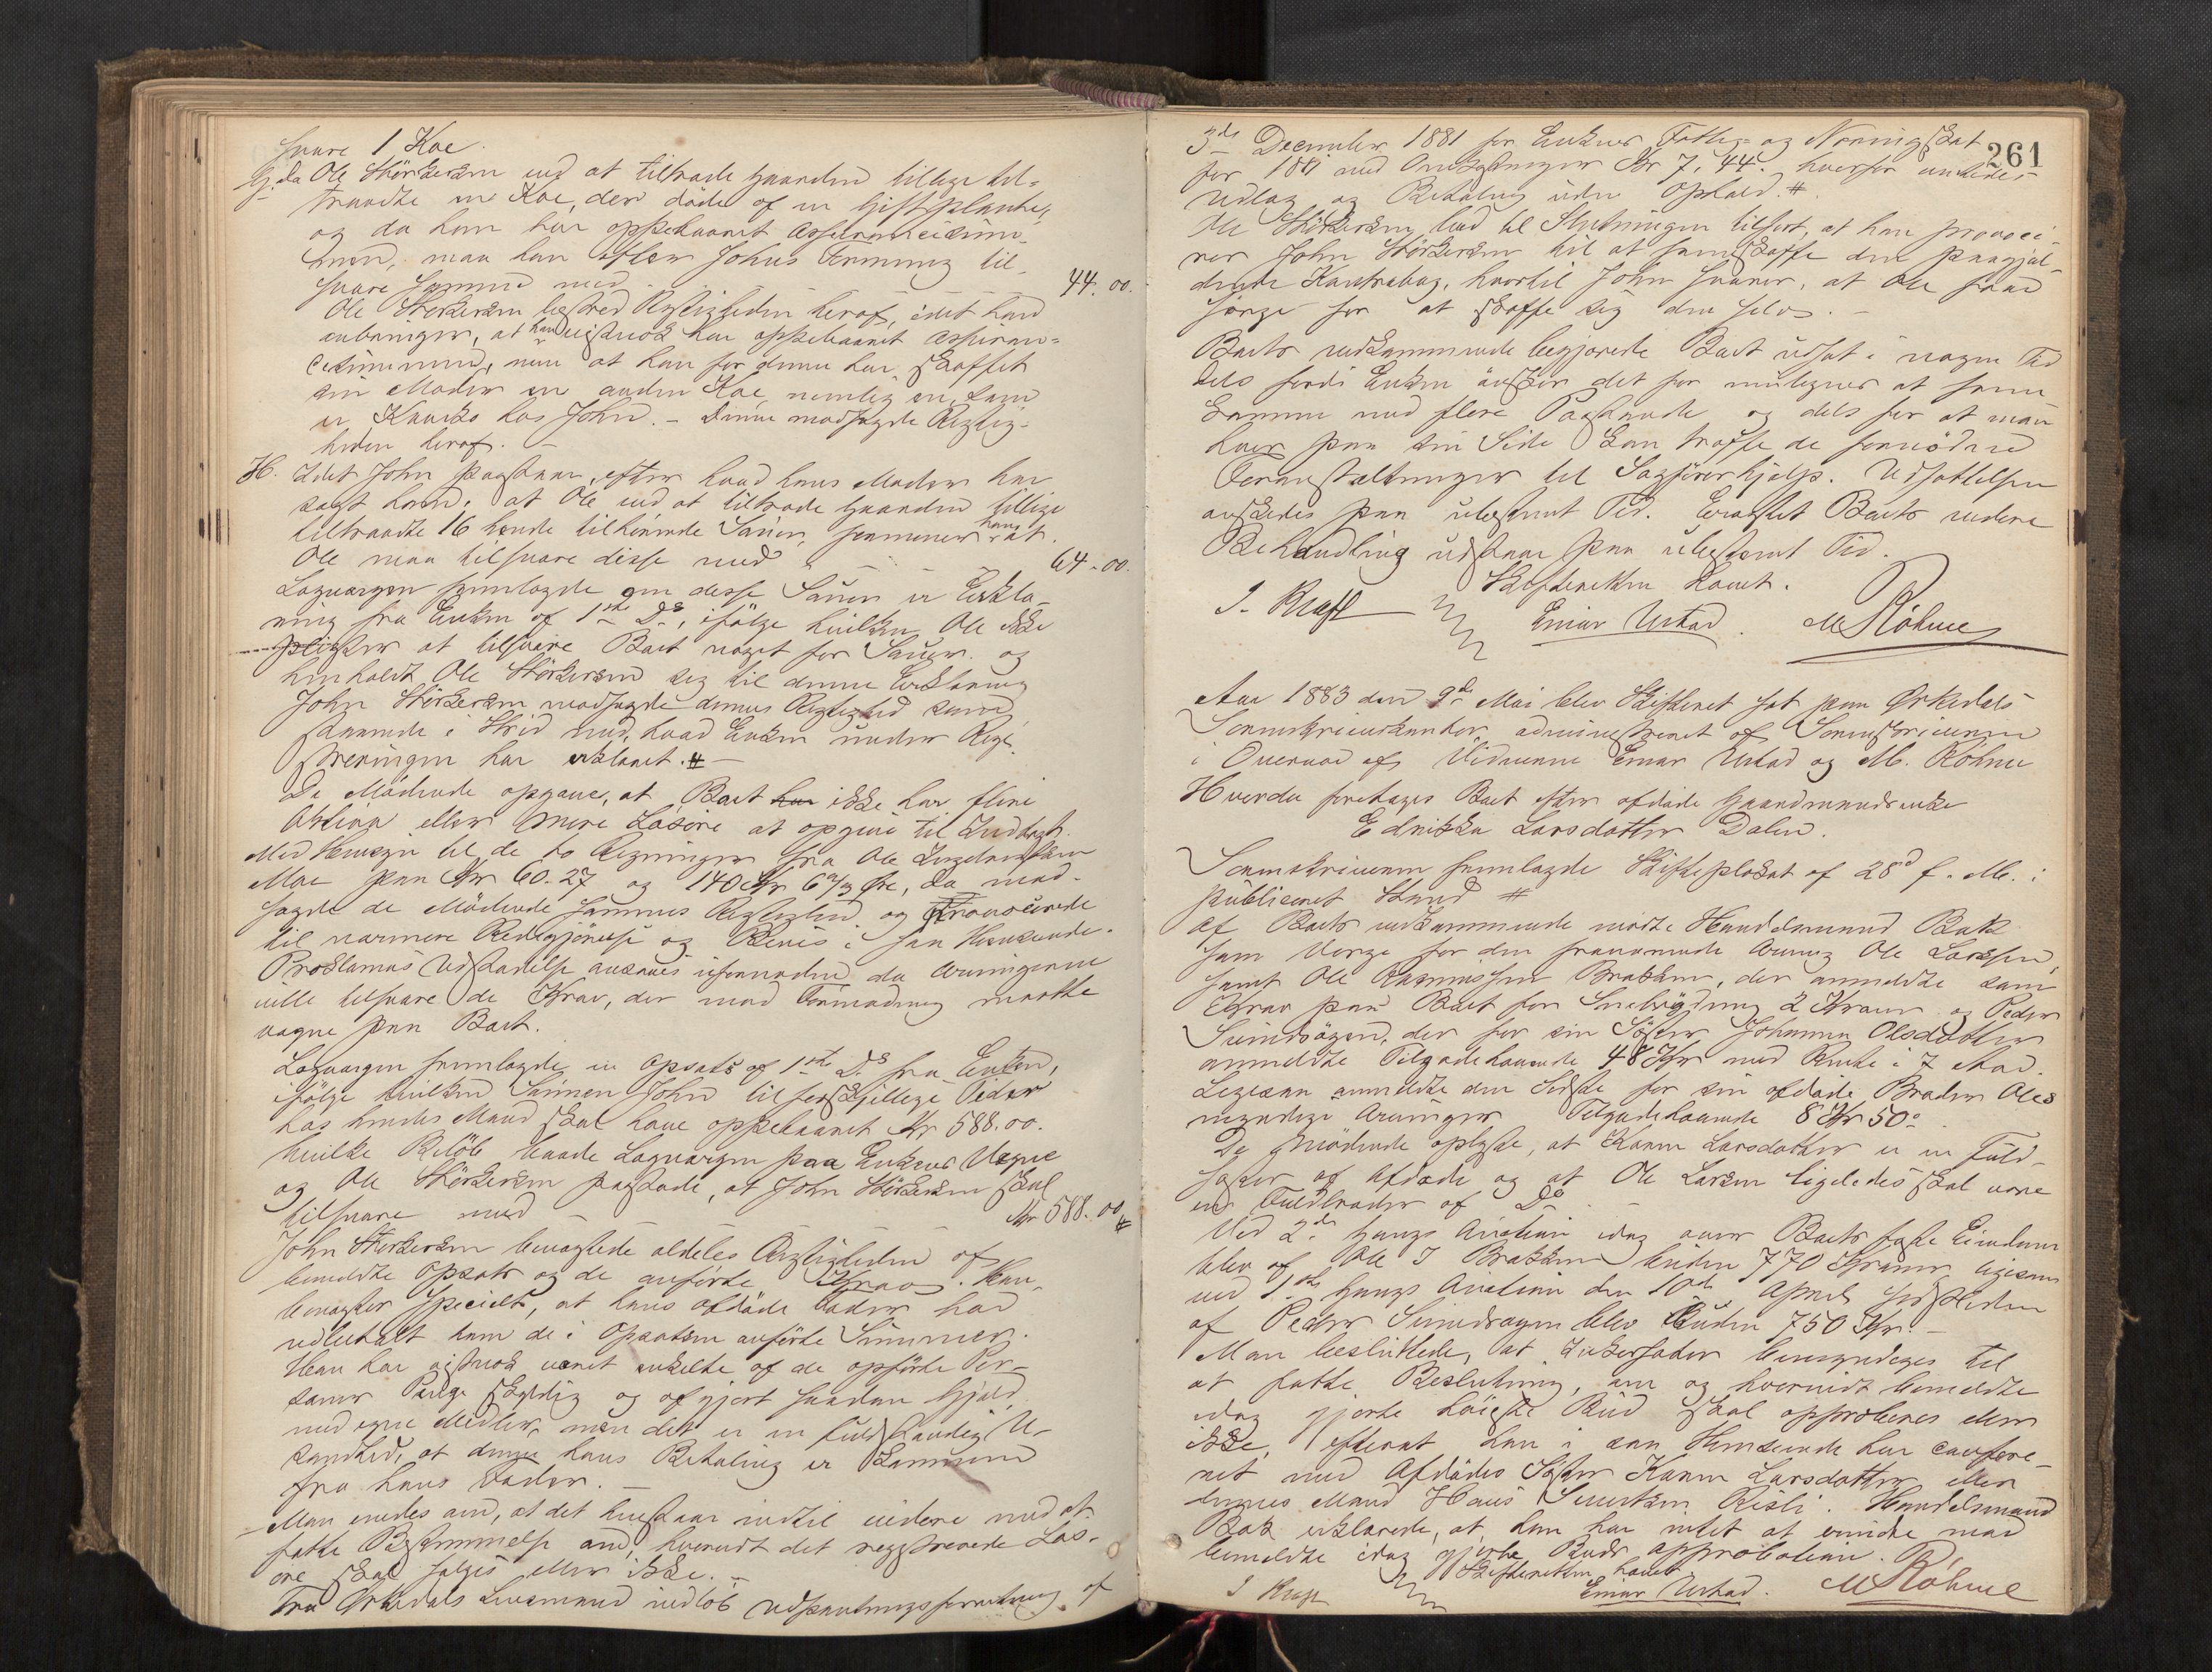 svare 1 Koe.
G. da Ole Störkersen ved at tiltræde Gaarden tillige til-
traadte en Koe, der döde af en Giftplante,
og da han har oppebaaret Assurancesum-
men, maa han efter Johns Formening til-
svare Summen med 44.00.
Ole Störkersen bestred Rigtigheden heraf, idet han
anbringer, at han vistnok har oppebaaret Assuran-
cesummen, men at han for denne har skaffet
sin Moder en anden Koe, nemlig en, som
er hos John. – Denne modsagde Rigtig-
heden heraf. –
H. Idet John paastaar, efter hvad hans Moder har
sagt ham, at Ole ved at tiltræde Gaarden tillige
tiltraadte 16 hende tilhörende Sauer, formener han at
Ole maa tilsvare disse med 64.00.
Laugværgen fremlagde om disse Sauer en Erklæ-
ring fra Enken af 1ste Ds, ifölge hvilken Ole ikke
pligter at tilsvare Boet noget for Sauer og
henholdt Ole Störkersen sig til denne Erklæring
John Störkersen modsagde dennes Rigtighed som
staaende i Strid med, hvad Enken under Regi-
streringen har erklæret. #
De Mödende opgave, at Boet har ikke har flere
Aktiva eller mere Lösöre at opgive til Indtægt.
Med Hensyn til de to Regninger fra Ole
Moe paa Kr 60.27 og 140 Kr 6 Øre, da mod-
sagde de Mödende sammes Rigtighed og provocerede
til nærmere Redegjörelse og Bevis i saa Henseende.
Proklamas Udstædelse ansaaes ufornöden da Arvingerne
ville tilsvare de Krav, der mod Formodning maatte
vaagne paa Boet.
Laugværgen fremlagde en Opsats af 1ste Ds fra Enken,
ifölge hvilken Sönnen John til forskjellige Tider
hos hendes Mand skal have oppebaaret Kr 588.00.
hvilke Belöb baade Laugværgen paa Enkens Vegne
og Ole Störkersen paastode, at John Störkersen skal
tilsvare med Kr 588.00 #
John Störkersen benægtede aldeles Rigtigheden af
bemeldte Opsats og de anförte Krav. Han
benægter specielt, at hans afdöde Fader har
udbetalt ham de i Opsatsen anförte Summer.
Han har vistnok været enkelte af de opförte Per-
soner Penge skyldig og afgjort saadan Gjæld
med egne Midler, men det er en fuldstændig U-
sandhed, at denne hans Betaling er kommen
fra hans Fader. –
Man enedes om, at det henstaar indtil videre med at
fatte Bestemmelse om, hvorvidt det registrerede Lös-
öre skal sælges eller ikke. –
Fra Ørkedals Lensmand indlöb Udpantningsforretning af
261
3die December 1881 for Enkens Fattig- og Næringsskat
for 1881 med Omkostninger Kr 7,44. hvorfor
Udlæg og Betaling uden Ophold. #
Ole Störkersen lod til Slutningen tilföre, at han provoce-
rer John Störkersen til at fremskaffe den paagjæl-
dende Kontrabog, hvortil John svarer, at Ole faar
sörge for at skaffe sig den selv. –
Boets Vedkommende begjærede Boet udsat i nogen Tid
dels fordi Enken önsker det for muligens at frem-
komme med flere Paastande og dels for at man
hver paa sin Side kan træffe de fornödne
Foranstaltninger til Sagförerhjelp. Udsættelsen
önskedes paa ubestemt Tid. Eragtet Boets videre
Behandling udstaar paa ubestemt Tid.
Skifteretten hævet.
J. Kraft Einar Urstad. M Röhme
Aar 1883 den 9de Mai blev Skifteret sat paa Ørkedals
Sorenskriverkontor, administreret af Sorenskriveren
i Overvær af Vidnerne Einar Urstad og M. Röhme
Hvorda foretages Boet efter afdöde Gaardmandsenke
Larsdatter Dalen.
Sorenskriveren fremlagde Skifteplakat af 28de f. M. i
publiceret Stand #
Af Boets Vedkommende mödte Handelsmand Bak
som Verge for den fraværende Arving Ole Larsen,
samt Ole Rasmussen Brækken, der anmeldte som
Krav paa Boet for 2 Kroner og Peder
der for sin Söster Johanna Olsdatter
anmeldte Tilgodehavende 48 Kr med Rente i 7 Aar.
Ligesaa anmeldte den Sidste for sin afdöde Broder Oles
myndige Arvinger Tilgodehavende 8 Kr 50.
De Mödende oplyste, at Karen Larsdatter er en Fuld-
söster af Afdöde og at Ole Larsen ligeledes skal være
en Fuldbroder af Do. –
Ved 2de Gangs Auktion idag over Boets faste Eiendom
blev af Ole J Brækken buden 770 Kroner ligesom
ved 1ste Gangs Auktion den 10de April sidstleden
af Peder blev buden 750 Kr. –
Man besluttede, at Skifteforvalter bemyndiges til
at fatte Beslutning, om og hvorvidt bemeldte
idag gjorte höieste Bud skal approberes eller
ikke, efterat han i saa Henseende har confere-
ret med Afdödes Söster Karen Larsdatter eller
dennes Mand Hans Sivertsen Risli. Handelsmand
Bak erklærede, at han har intet at erindre mod
bemeldte idag gjorte Buds Approbation.
Skifteretten hævet
J Kraft Einar Urstad. M Röhme